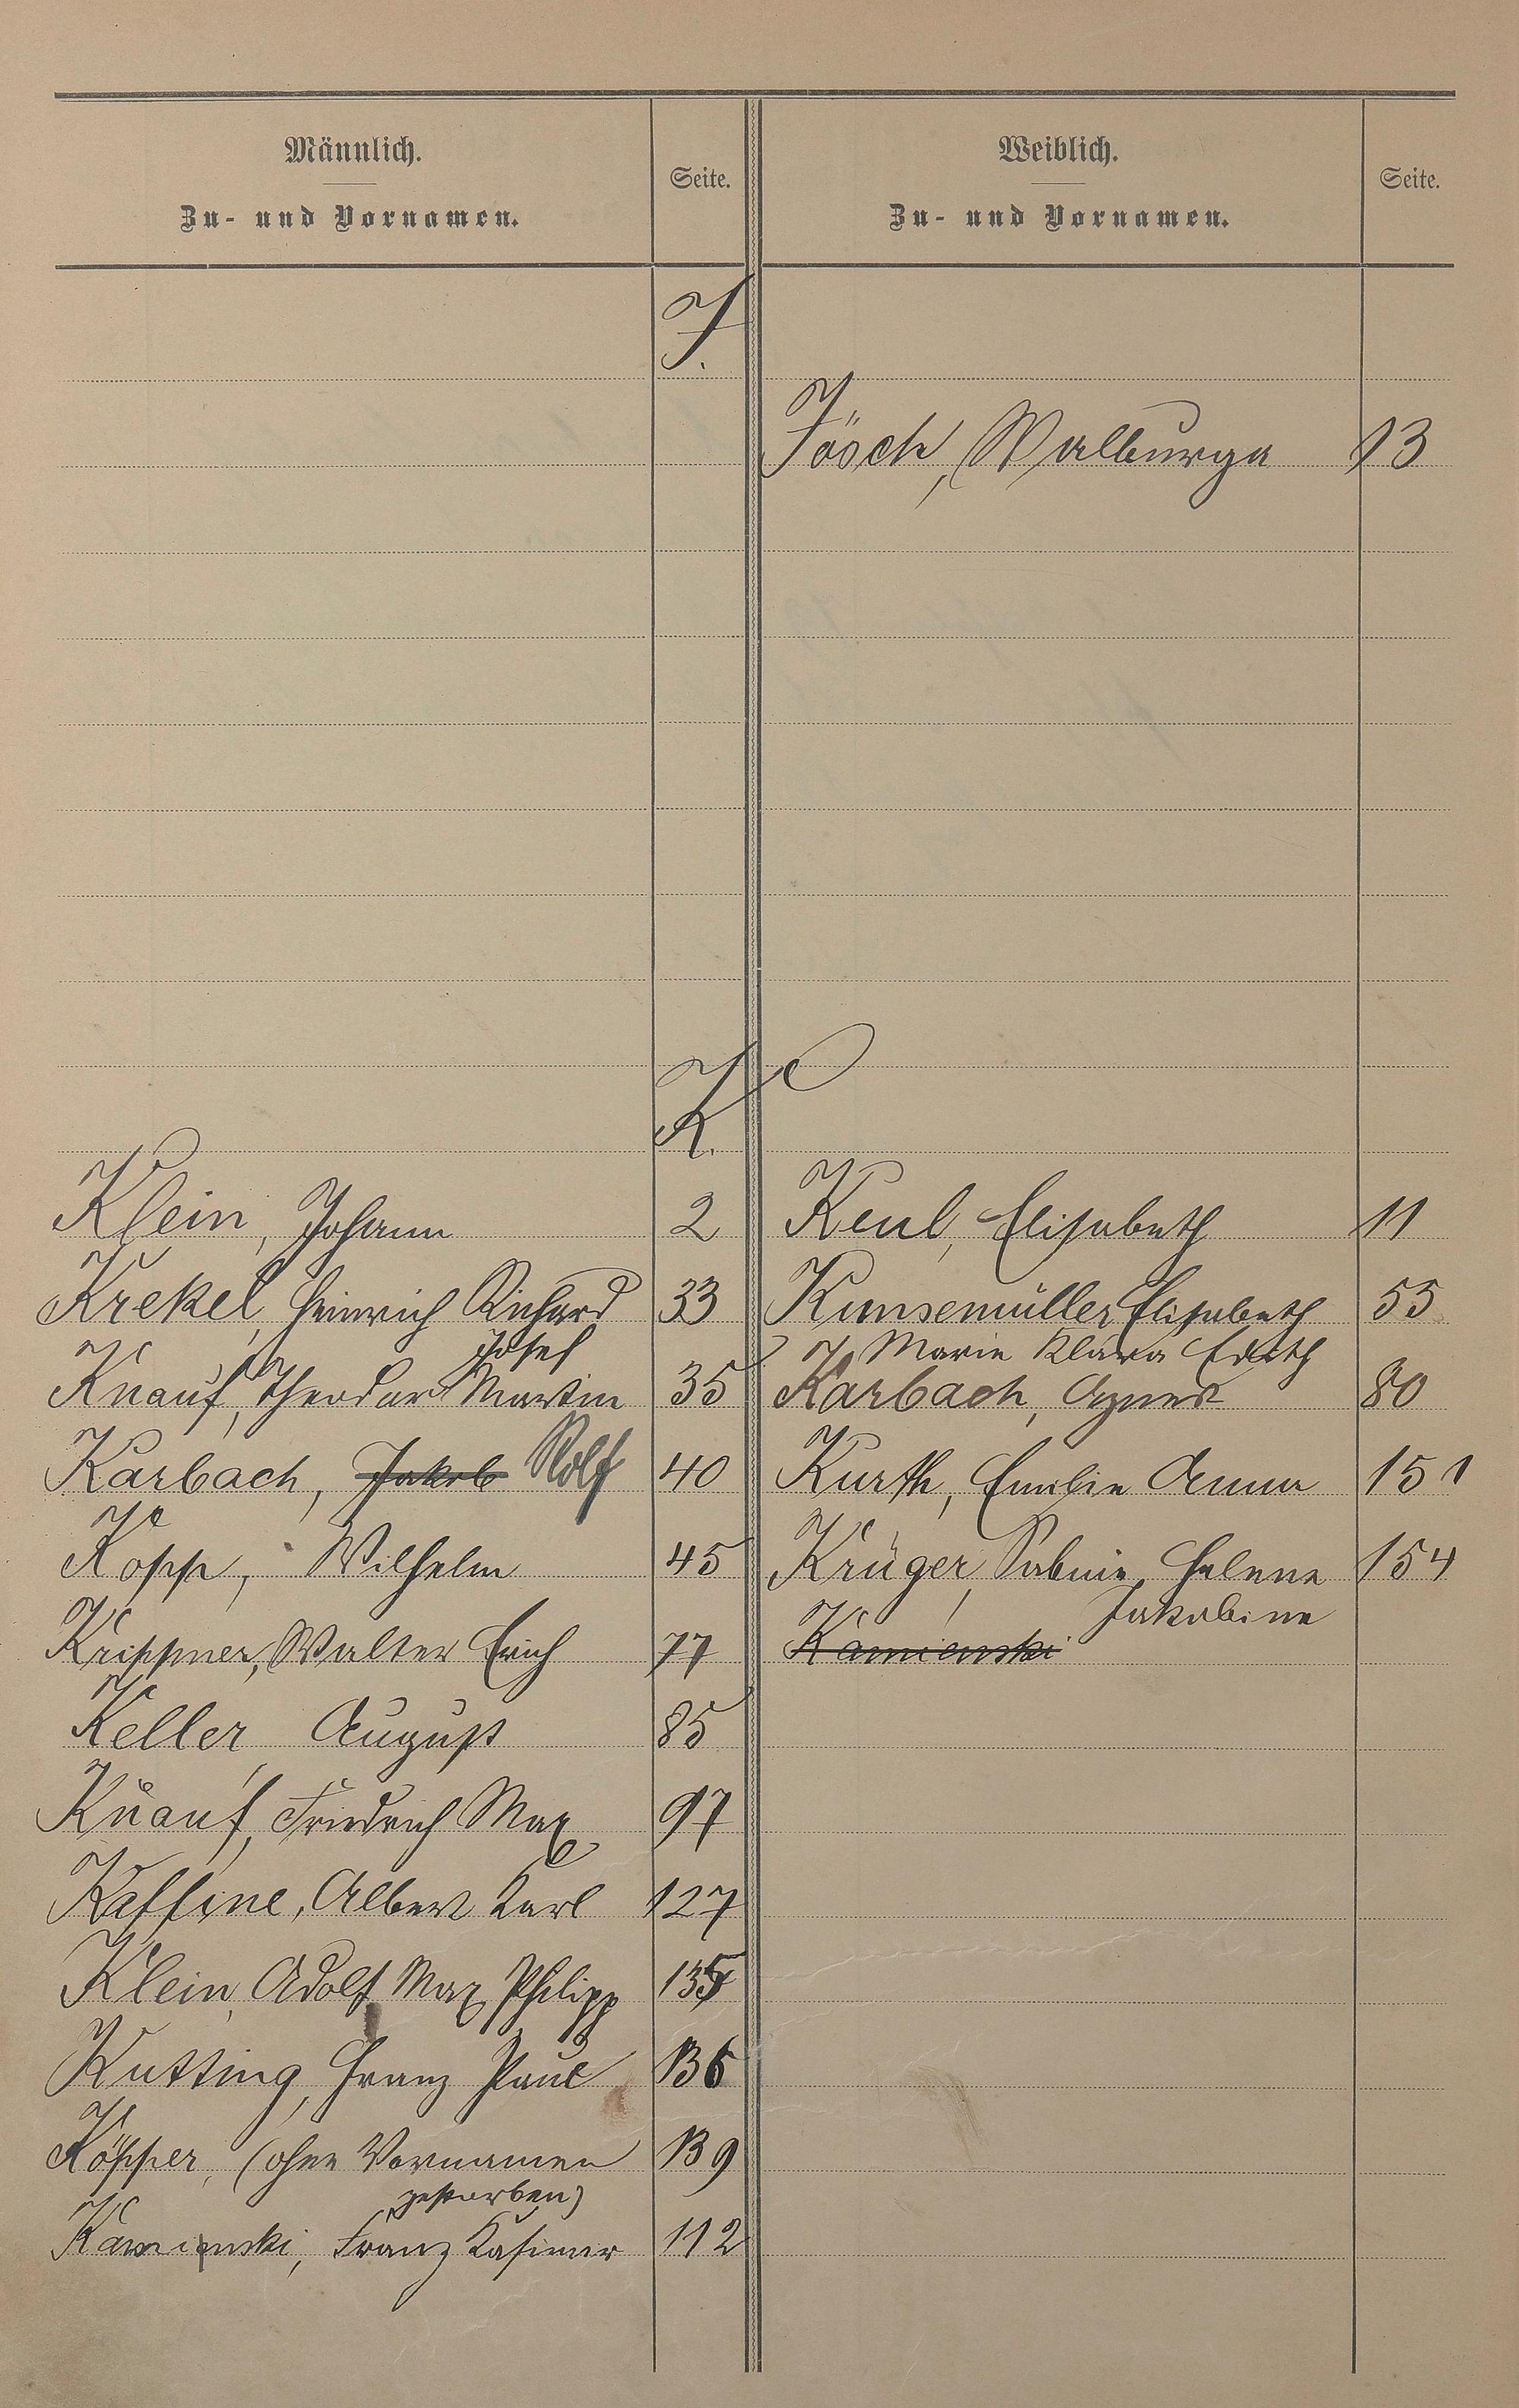 Männlich.
Zu- und Vornamen.
Seite.
Weiblich.
Zu- und Vornamen.
Seite.
J.
Jösch, Walburga 13
K.
Klein, Johann 2
Keul, Elisabeth 11
Krekel, Heinrich Richard 33
Kunsemüller Elisabeth 55
Josef
Marie Klara Edith
Knauf, Theodor Martin 35
Karbach, Agnes 80
Karbach, Jakob Rolf 40
Kurth, Emilie Anna 151
Kopp, Wilhelm 45
Krüger, Sabine Helene 154
Jakobine
Krippner, Walter Erich 77
Kamienski
Keller, August 85
Knauf, Friedrich Max 97
Kaffine, Albert Karl 127
Klein, Adolf Max Philipp
Kutting, Franz Paul 136
Köpper, (ohne Vornamen 139
gestorben)
Kamienski, Franz Kasimir 112